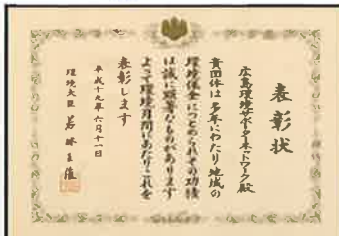 表彰状
広島環境サポーターネットワーク殿
貴団体は多年にわたり地域の
環境保全につとめられその功績
は誠に顕著なものがあります
よって環境月間にあたりこれを
表彰します
平成十九年六月十一日
環境大臣 若林正俊